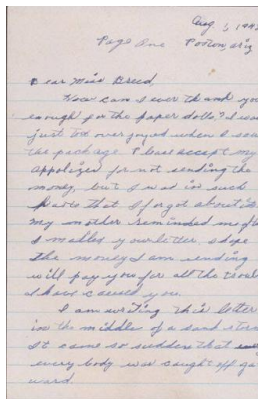 Aug. 3, 194
Page One Poston, Ariz
Dear Miss Breed,
How can I ever thank you
enough for the paper dolls? I was
just too overjoyed when I saw
the package. Please accept my
appologies for not sending the
money, but I was in such
haste that I forgot about it.
My mother reminded me after
I mailed your letter. I hope
the money I am sending
will pay you for all the trouble
I have caused you.
I am writing this letter
in the middle of a sand storm
It came so sudden that
every body was caught off ga
ward.